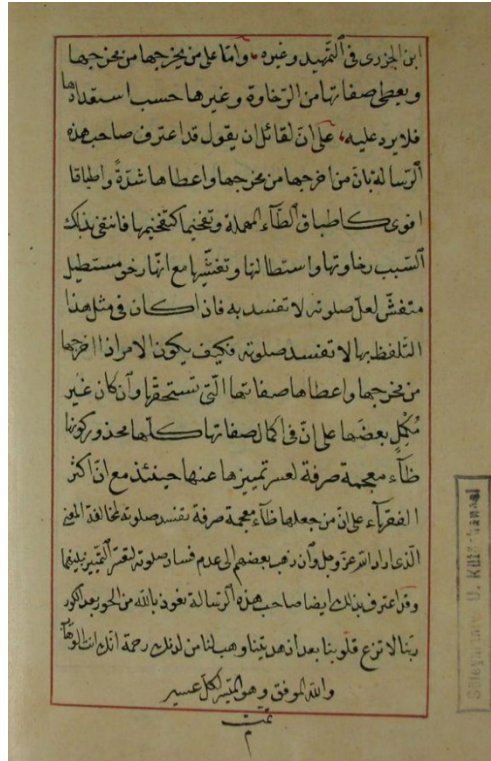 ابن الجزرى فى التمهيد وغيره ، وامّا على من يخرجها من مخرجها
ويعطى صفاتها من الرّخاوة وغيرها حسب استعدادها
فلا يرد عليه ، على انّ لقائل ان يقول قد اعترف صاحب هذه
الرّسالة بانّ من اخرجها من مخرجها واعطاها شدّةً واطباقا
اقوى كاطباق الطّآء المهملة وتفخيما كتفخيمها فانتفى بذلك
السّبب رخاوتها واستطالتها وتفشّيها مع انّها رخو مستطيل
متفشّ لعلّ صلوته لا تفسد به فاذا كان فى مثل هذا
التلفّظ بها لا تفسد صلوته فكيف يكون الامر اذا اخرجها
من مخرجها واعطاها صفاتها الّتى تستحقّها وان كان غير
مُكمِلٍ بعضَها على انّ فى اكمال صفاتها كلّها محذور كونها
ظآء معجمة صرفة لعسر تمييزها عنها حينئذ مع انّ اكثر
الفقهآء على انّ من جعلها ظآء معجمة صرفة تفسد صلوته لمخالفة المعنى
الّذى اراد الله عزّ وجل وان ذهب بعضهم الى عدم فساد صلوته لتعسّر التّمييز بينهما
وقد اعترف بذلك ايضا صاحب هذه الرّسالة نعوذ بالله من الحور بعد الكور
ربّنا لا تزغ قلوبنا بعد اذ هديتنا وهب لنا من لدنك رحمة انّك انت الوهّاب
والله الموفّق وهو الميّسر لكلّ عسير
تمّت
م
Süleymaniye U. Kütüphanesi